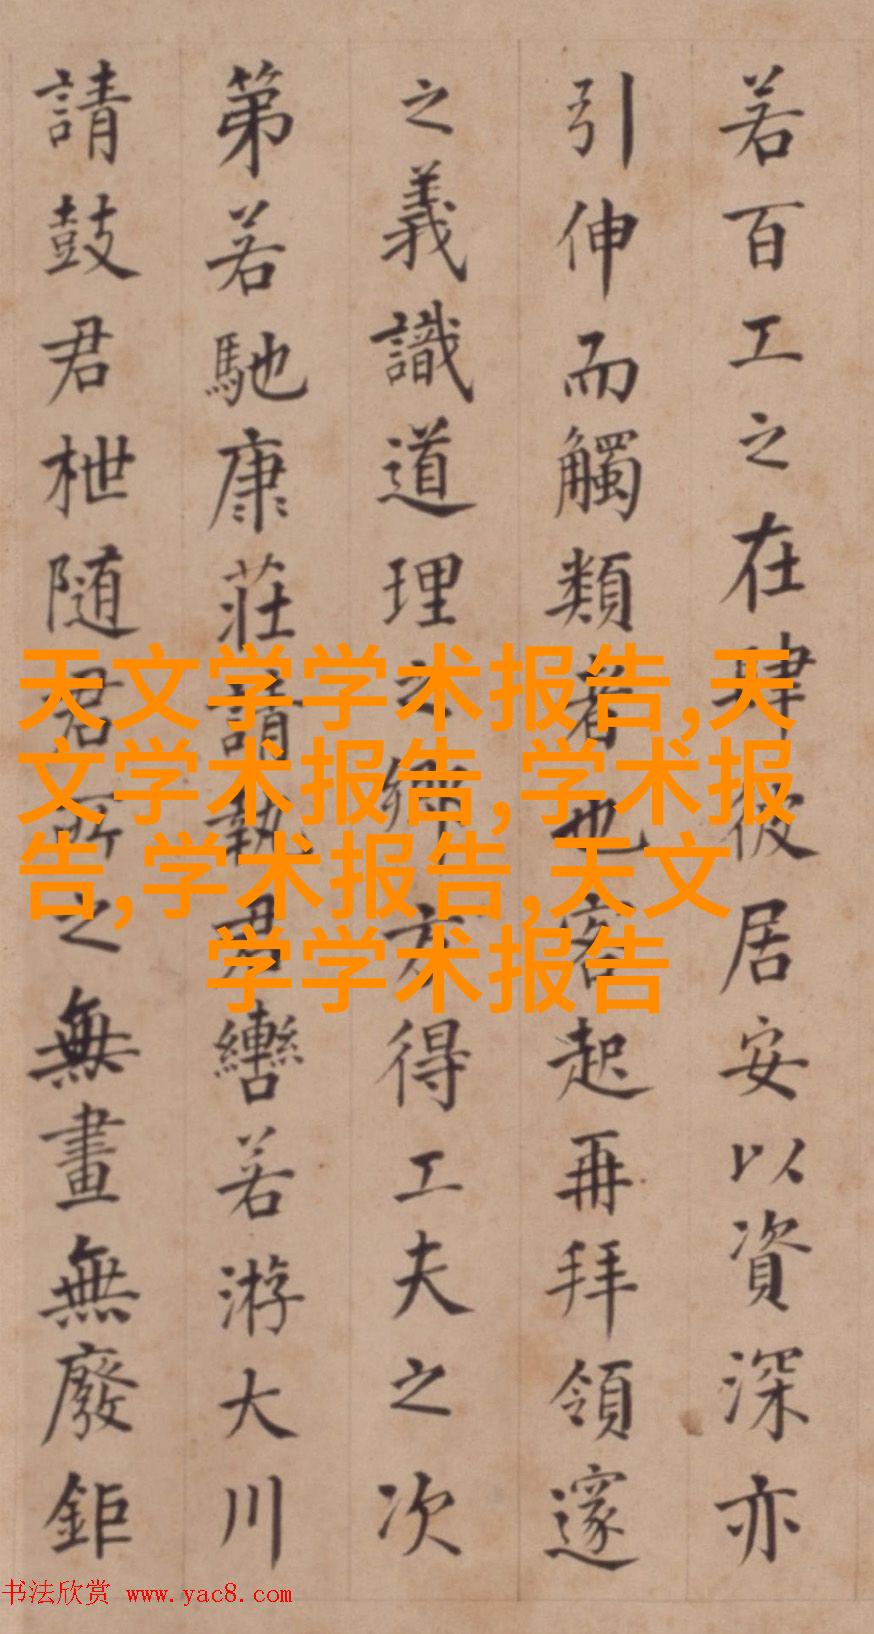 若百工之在肆彼居安以資深亦
引伸而觸類者也客起再拜領邃
之義識道理之鄉亦得工夫之次
第若馳康莊請執君轡若游大川
請鼓君枻随君所之無晝無廢鉅
天文学学术报告,天
文学术报告,学术报
告,学术报告,天文
学学术报告
书法欣赏 www.yac8.com